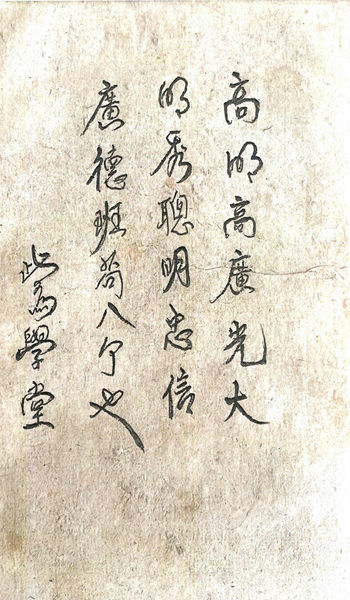 高明高廣光大
明秀聰明忠信
廣德班筍八个也
此為學堂